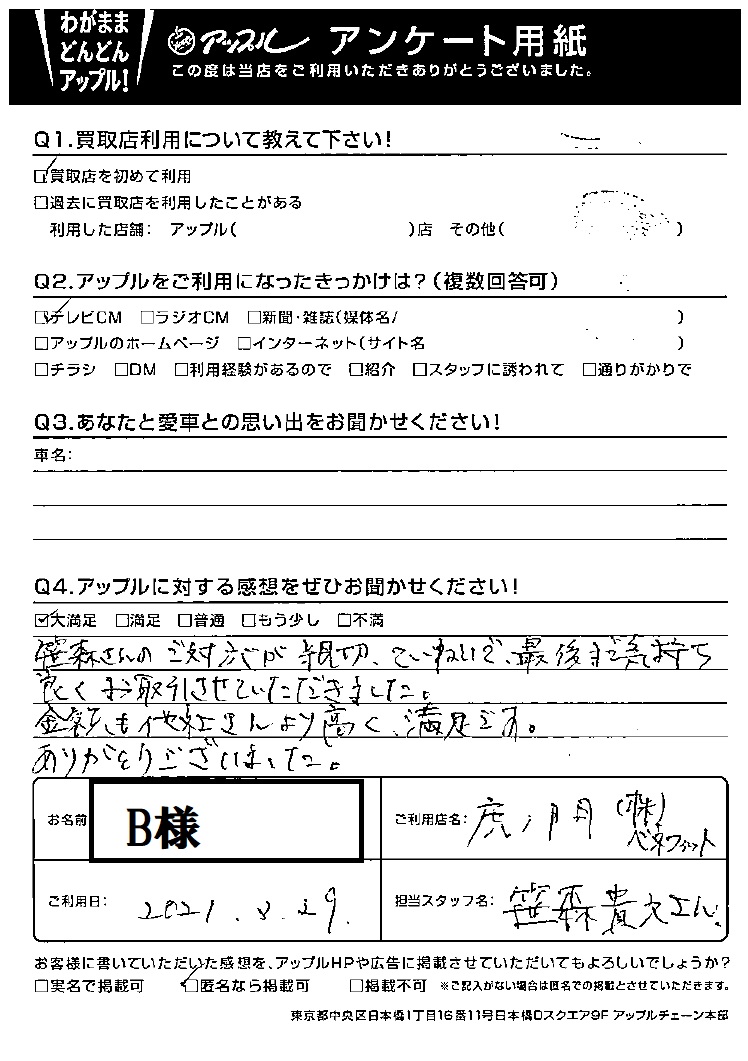 わがまま
どんどん
アップル!
アップル アンケート用紙
この度は当店をご利用いただきありがとうございました。
Q1.買取店利用について教えて下さい!
☑買取店を初めて利用
□過去に買取店を利用したことがある
利用した店舗: アップル( )店 その他( )
Q2.アップルをご利用になったきっかけは?(複数回答可)
☑テレビCM □ラジオCM □新聞・雑誌(媒体名/ )
□アップルのホームページ □インターネット(サイト名 )
□チラシ □DM □利用経験があるので □紹介 □スタッフに誘われて □通りがかりで
Q3.あなたと愛車との思い出をお聞かせください!
車名:
Q4.アップルに対する感想をぜひお聞かせください!
☑大満足 □満足 □普通 □もう少し □不満
笹森さんのご対応が親切、ていねいで、最後まで気持ち
良くお取引させていただきました。
金額も他社さんより高く、満足です。
ありがとうございました。
お名前 B様
ご利用店名: (株)
ベネフィット
ご利用日: 2021.3.29.
担当スタッフ名: 笹森貴 さん
お客様に書いていただいた感想を、アップルHPや広告に掲載させていただいてもよろしいでしょうか?
□実名で掲載可 ☑匿名なら掲載可 □掲載不可 ※ご記入がない場合は匿名での掲載とさせていただきます。
東京都中央区日本橋1丁目16番11号日本橋Dスクエア9F アップルチェーン本部